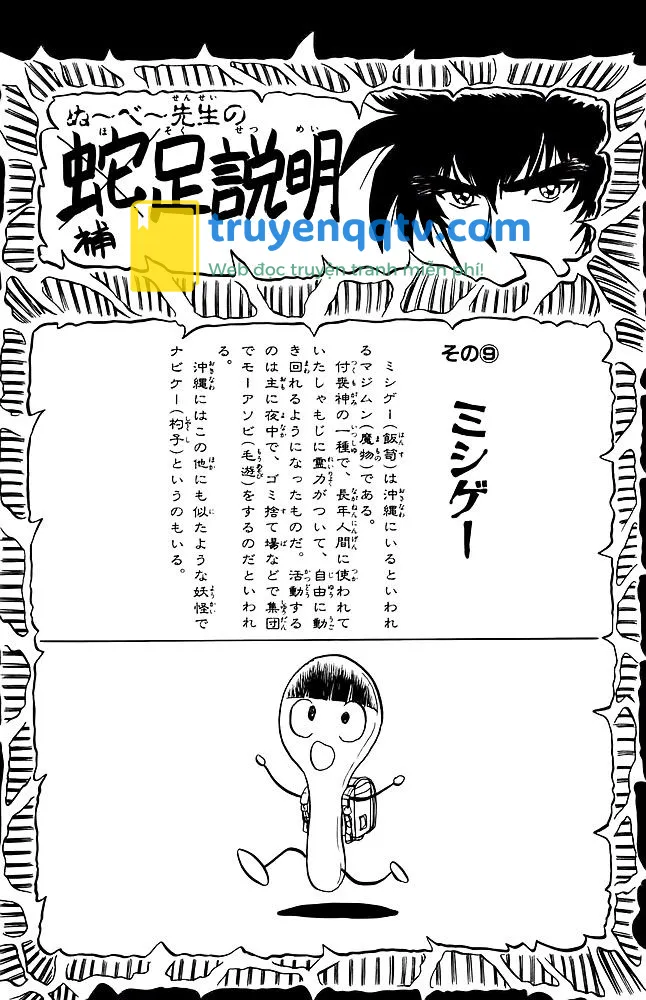 ぬ〜べ〜先生の
蛇足説明
補
truyenqqtv.com
Web đọc truyện tranh miễn phí!
その⑨
ミシゲー
ミシゲー(飯笥)は沖縄にいるといわれ
るマジムン(魔物)である。
付喪神の一種で、長年人間に使われて
いたしゃもじに霊力がついて、自由に動
き回れるようになったものだ。活動する
のは主に夜中で、ゴミ捨て場などで集団
でモーアソビ(毛遊)をするのだといわれ
る。
沖縄にはこの他にも似たような妖怪で
ナビゲー(杓子)というのもいる。